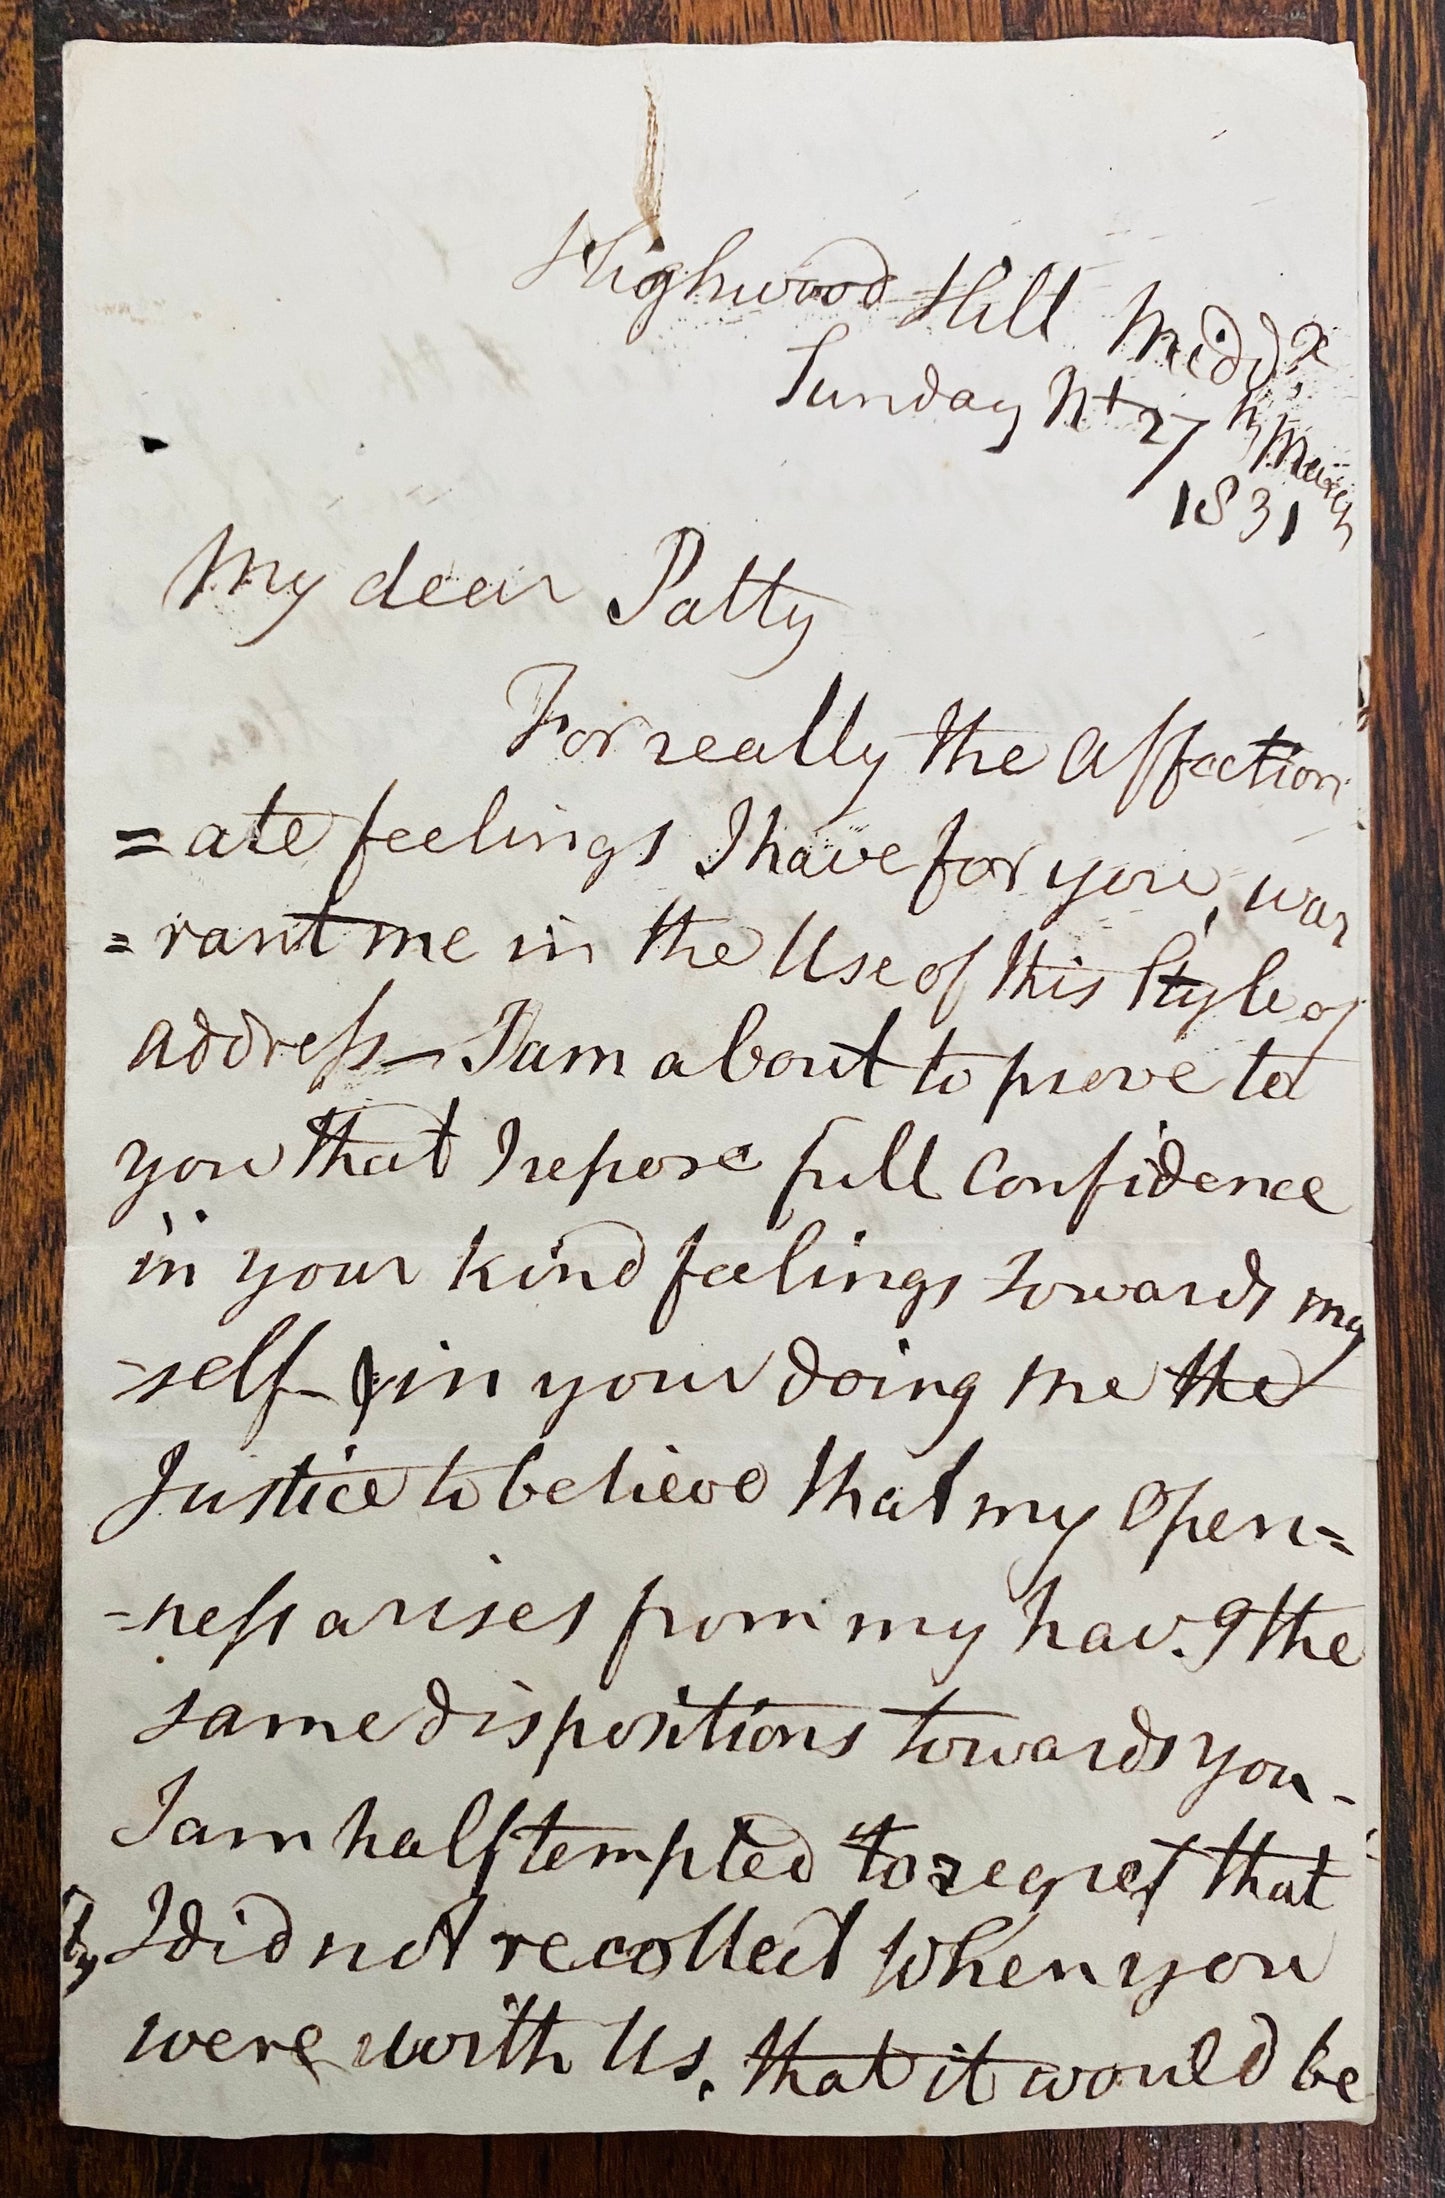 Highwood Hill Midd.x
Sunday Nt 27 March
1831
My dear Patty
For really the Affection
=ate feelings I have for you, war
=rant me in the Use of this Style of
address— I am about to prove to
you that I repose full Confidence
in your kind feelings towards my
-self— in your doing me the
Justice to believe that my Open=
-ness arises from my hav.g the
same dispositions towards you-
I am half tempted to regret that
I did not recollect when you
were with Us, that it would be